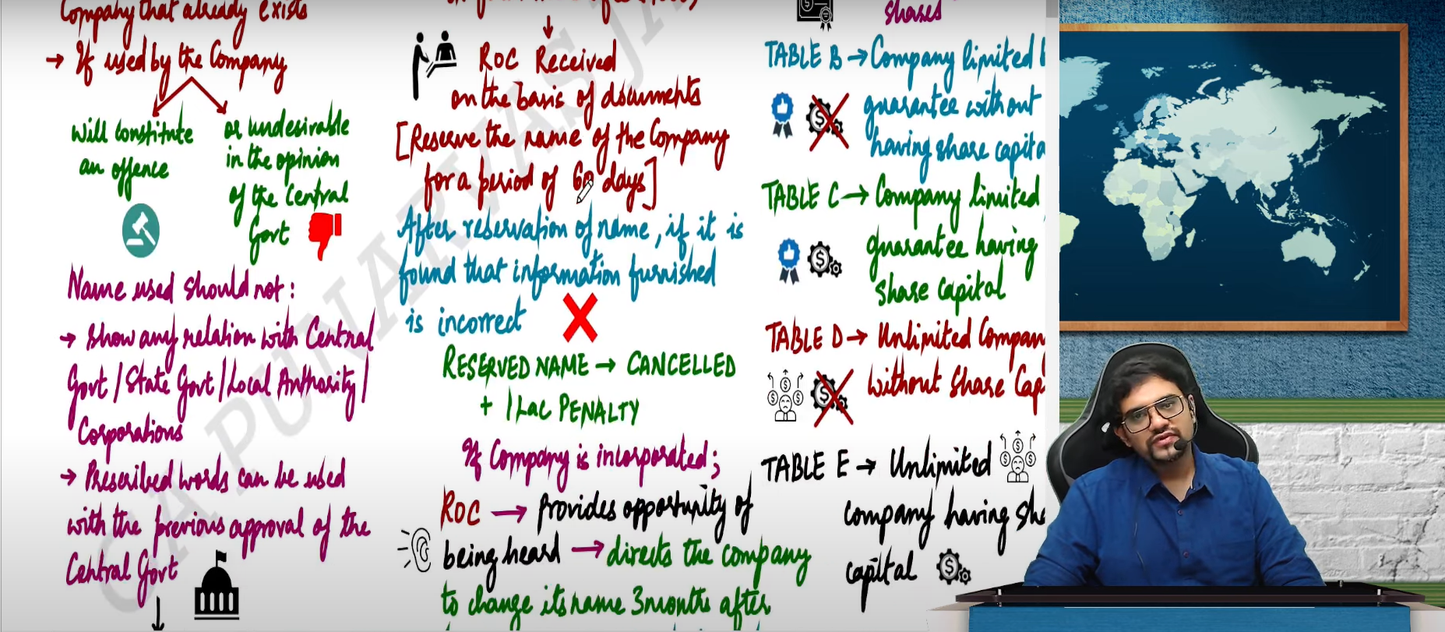 Company that already exists
→ If used by the Company
will constitute
an offence
or undesirable
in the opinion
of the Central
Govt
Name used should not :
→ Show any relation with Central
Govt / State Govt / Local Authority /
Corporations
→ Prescribed words can be used
with the previous approval of the
Central Govt
ROC Received
on the basis of documents
[Reserve the name of the Company
for a period of 60 days]
After reservation of name, if it is
found that information furnished
is incorrect
RESERVED NAME → CANCELLED
+ 1 Lac PENALTY
If Company is incorporated;
ROC → Provides opportunity of
being heard → directs the company
to change its name 3 months after
shares
TABLE B → Company limited b
guarantee without
having share capita
TABLE C → Company limited
guarantee having
share capital
TABLE D → Unlimited Compan
without Share Cap
TABLE E → Unlimited
company having sha
capital
CA PUNARVAS JA